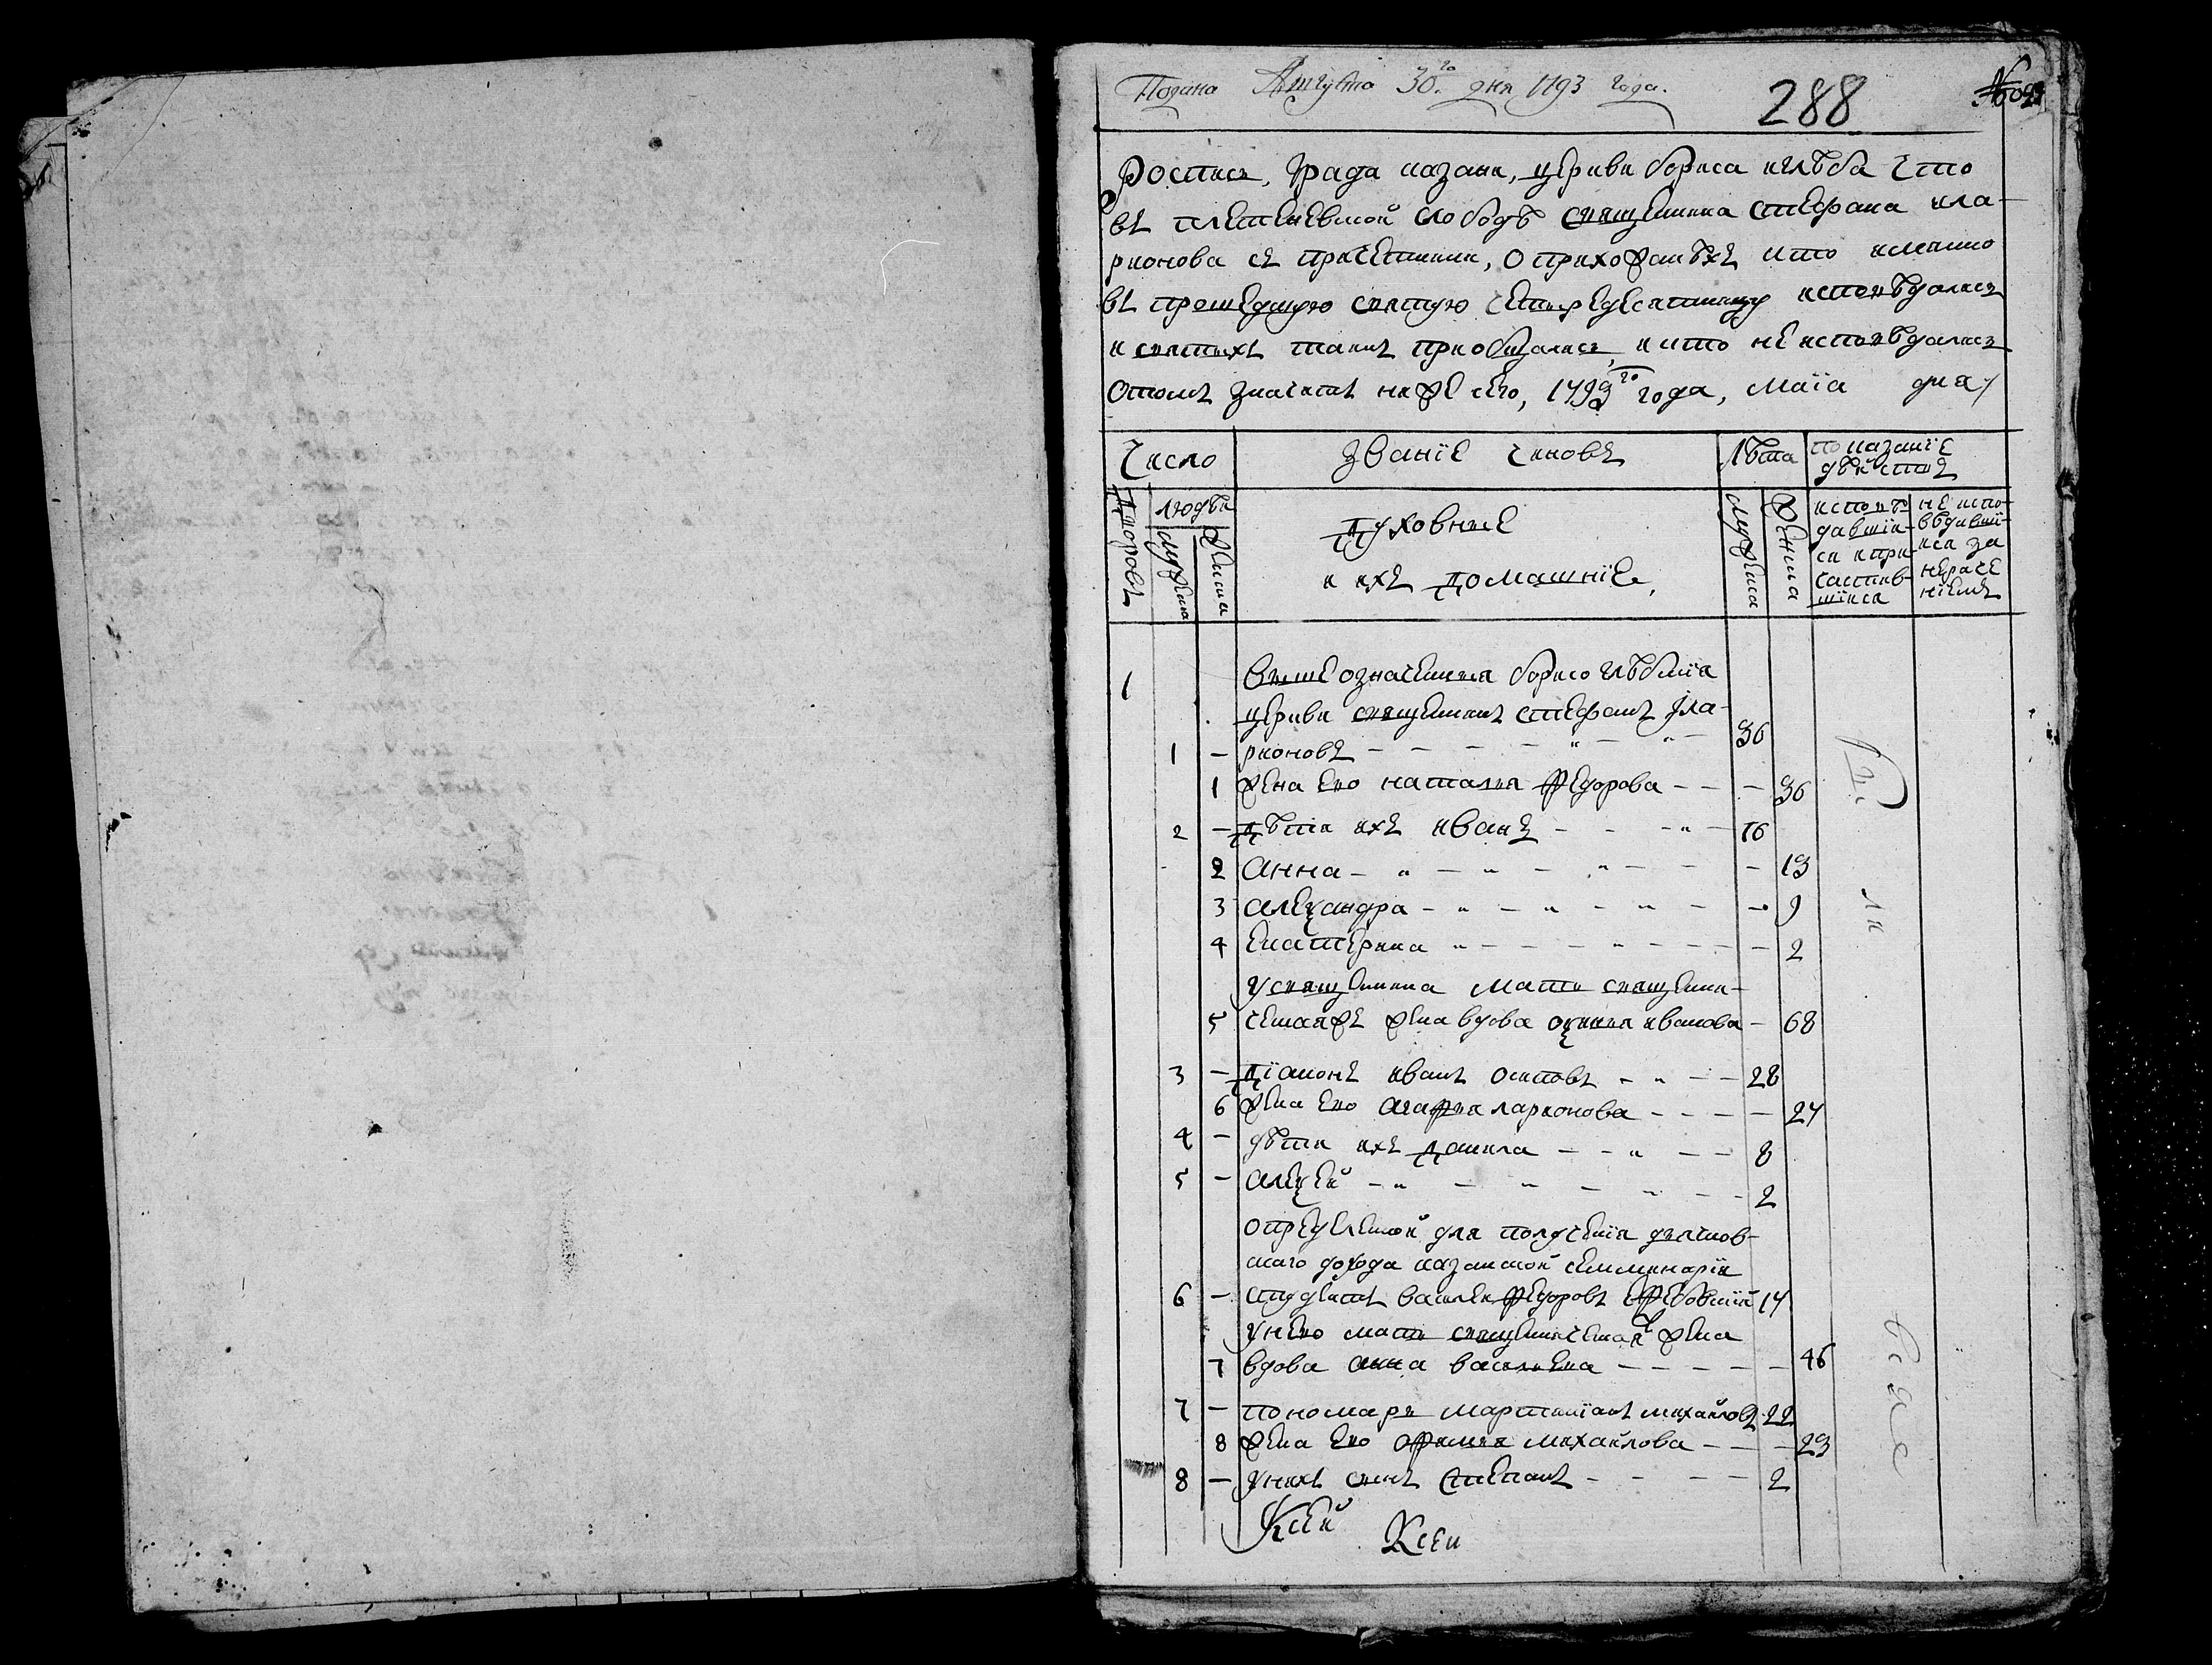 Подана Августа 30.го дня 1793 года.
288
Роспись, града казани, церкви бориса иглѣба что
въ плетеневской слободѣ священника стефана ила-
рионова съ причетники, оприхожанѣхъ кто имянно
въ прошедшую святую четыредесятницу исповѣдались
и святыхъ таинъ приобщались, икто не исповѣдались
отомъ значитъ ниже сего, 1793го года, маїа дня
Число
званїе чиновъ
лѣта
показанїе
дѣйствъ
Дворовъ
людѣй
мужеска
женска
Духовные
и ихъ домашнїе,
мужеска
женска
исповѣ-
давшїи-
ся и при-
частив-
шїися
не испо-
вѣдавшї-
ися за
нераче-
нїемъ
1
вышеозначенныя борисоглѣбскїя
церкви священникъ стефанъ Ила-
1 — рионовъ 36
1 жена ево наталья федорова 36
2 — дѣти ихъ иванъ 16
2 анна 13
3 алеѯандра 9
4 екатерина 2
у священника мать священни-
5 ческаяже жена вдова оѯинья иванова 68
3 — дїаконъ иванъ осиповъ 28
6 жена ево агафья ларионова 27
4 — дѣти ихъ данила 8
5 — алеѯей 2
опредѣленной для полученїя дьячков-
скаго дохода казанской семминарїи
6 — студентъ василей федоровъ 17
унево мать священническаяже жена
7 вдова анна васильева 46
7 — пономарь мартинїанъ михайловъ 22
8 жена ево офимья михайлова 23
8 — унихъ сынъ степанъ 2
Ксей
Ксеи